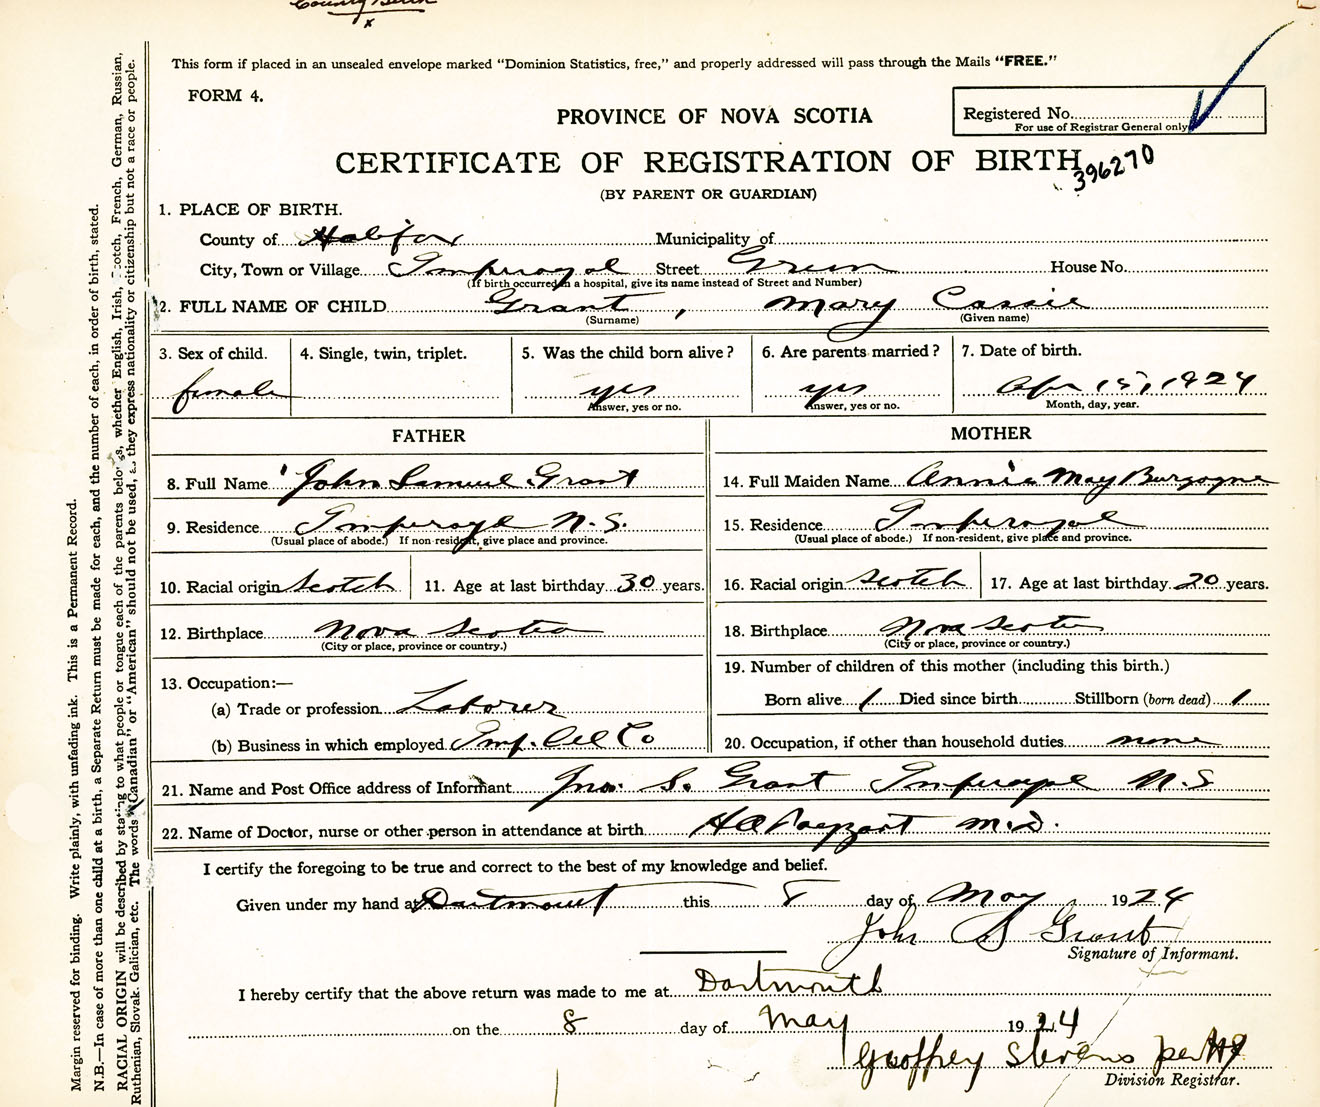 County Birth
x
This form if placed in an unsealed envelope marked "Dominion Statistics, free," and properly addressed will pass through the Mails "FREE."
FORM 4.
PROVINCE OF NOVA SCOTIA
Registered No.
For use of Registrar General only
CERTIFICATE OF REGISTRATION OF BIRTH
396270
(BY PARENT OR GUARDIAN)
1. PLACE OF BIRTH.
County of Halifax Municipality of
City, Town or Village Imperoyal Street Green House No.
(If birth occurred in a hospital, give its name instead of Street and Number)
2. FULL NAME OF CHILD Grant, Mary Cassie
(Surname) (Given name)
3. Sex of child. 4. Single, twin, triplet. 5. Was the child born alive? 6. Are parents married? 7. Date of birth.
female yes yes Apr 15, 1924
Answer, yes or no. Answer, yes or no. Month, day, year.
FATHER
8. Full Name John Samuel Grant
9. Residence Imperoyl N.S.
(Usual place of abode.) If non-resident, give place and province.
10. Racial origin Scotch 11. Age at last birthday 30 years.
12. Birthplace Nova Scotia
(City or place, province or country.)
13. Occupation:—
(a) Trade or profession Laborer
(b) Business in which employed Imp. Oil Co
MOTHER
14. Full Maiden Name Annie May Burgoyne
15. Residence Imperoyal
(Usual place of abode.) If non-resident, give place and province.
16. Racial origin Scotch 17. Age at last birthday 20 years.
18. Birthplace Nova Scotia
(City or place, province or country.)
19. Number of children of this mother (including this birth.)
Born alive 1 Died since birth Stillborn (born dead) 1
20. Occupation, if other than household duties none
21. Name and Post Office address of Informant Jno. S. Grant Imperoyl N.S
22. Name of Doctor, nurse or other person in attendance at birth M.D.
I certify the foregoing to be true and correct to the best of my knowledge and belief.
Given under my hand at Dartmouth this 8 day of May 1924
John S Grant
Signature of Informant.
I hereby certify that the above return was made to me at Dartmouth
on the 8 day of May 1924
Geoffrey Stevens per
Division Registrar.
Margin reserved for binding. Write plainly, with unfading ink. This is a Permanent Record.
N.B.—In case of more than one child at a birth, a Separate Return must be made for each, and the number of each, in order of birth, stated.
RACIAL ORIGIN will be described by stating to what people or tongue each of the parents belongs, whether English, Irish, Scotch, French, German, Russian,
Ruthenian, Slovak. Galician, etc. The words "Canadian" or "American" should not be used, as they express nationality or citizenship but not a race or people.